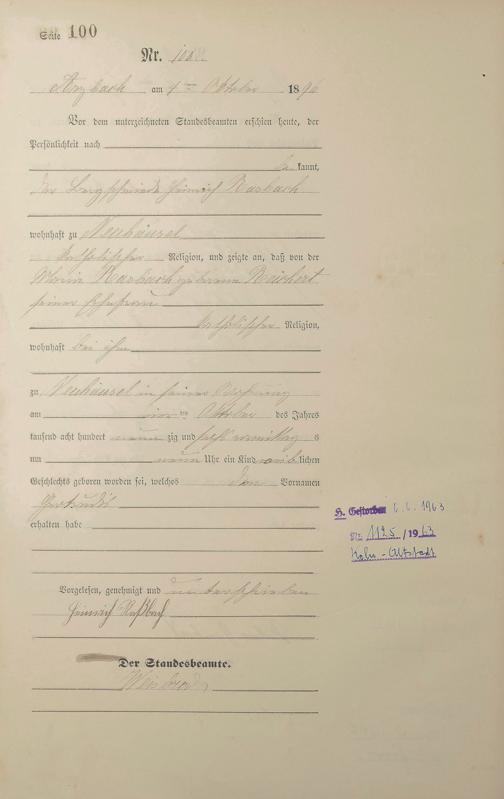 Seite 100
Nr. 100
Arzbach am 4ten Oktober 1896
Vor dem unterzeichneten Standesbeamten erschien heute, der
Persönlichkeit nach
be kannt,
der Bergschmied Heinrich Rasbach
wohnhaft zu Neuhäusel
katholischer Religion, und zeigte an, daß von der
Maria Rasbach geborene Reichert
seiner Ehefrau
katholischer Religion,
wohnhaft bei ihm
zu Neuhäusel in seiner Wohnung
am ten Oktober des Jahres
tausend acht hundert neun zig und sechs vormittags
um neun Uhr ein Kind weiblichen
Geschlechts geboren worden sei, welches den Vornamen
Gertrude
erhalten habe
Vorgelesen, genehmigt und unterschrieben
Heinrich Raßbach
Der Standesbeamte.
H. Gestorben 6.6.1963
Nr. 1195/1963
Köln-Altstadt